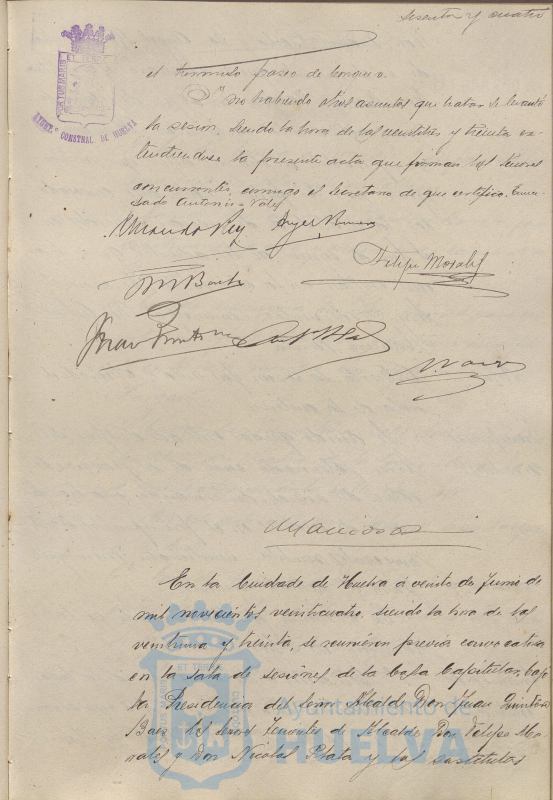 sesenta y cuatro
AYUNT.º CONSTNAL. DE HUELVA
el término paseo de
Y no habiendo otros asuntos que tratar se levantó
la sesión, siendo la hora de las veintitres y treinta ex-
tendiendose la presente acta que firman los Señores
concurrentes, conmigo el Secretario de que certifico. Enmen-
dado Antonio = Vale
Felipe Morales
En la Ciudad de Huelva á veinte de Junio de
mil novecientos veinticuatro, siendo la hora de las
veintiuna y treinta, se reunieron previa convocatoria
en la Sala de sesiones de la Casa Capitular, bajo
la Presidencia del Señor Alcalde Don Juan Quintero
Baez los Señores Tenientes de Alcalde Don Felipe Mo-
rales y Don Nicolás Plata y los sustitutos
PORTUS MARIS ET TERRE
Ayuntamiento de
HUELVA